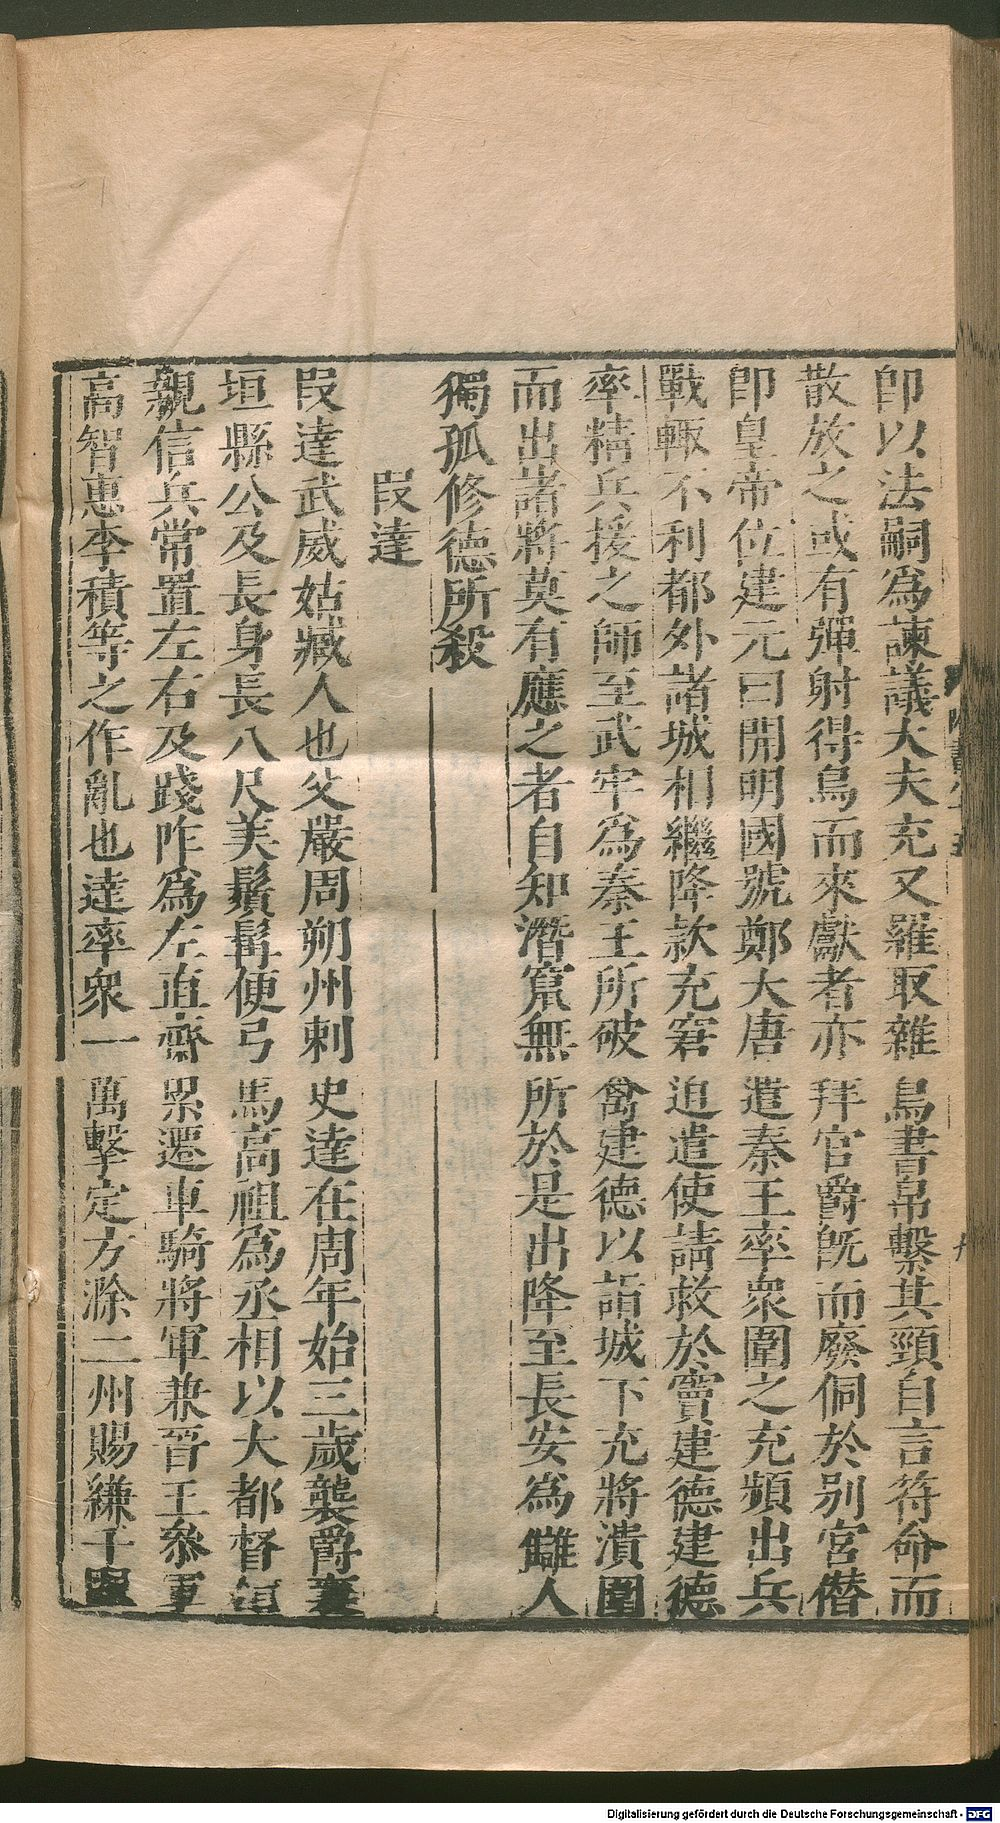 即以法嗣爲諫議大夫充又羅取雜鳥書帛繫其頸自言符命而
散放之或有彈射得鳥而來獻者亦拜官爵旣而廢侗於别宮僭
即皇帝位建元曰開明國號鄭大唐遣秦王率衆圍之充頻出兵
戰輒不利都外諸城相繼降款充窘迫遣使請救於竇建德建德
率精兵援之師至武牢爲秦王所破禽建德以詣城下充將潰圍
而出諸將莫有應之者自知潛竄無所於是出降至長安爲讎人
獨孤修德所殺
段達
段達武威姑臧人也父嚴周朔州刺史達在周年始三歲襲爵襄
垣縣公及長身長八尺美鬚髯便弓馬高祖爲丞相以大都督領
親信兵常置左右及踐阼爲左直齋累遷車騎將軍兼晉王叅軍
高智惠李積等之作亂也達率衆一萬擊定方滁二州賜縑千
Digitalisierung gefördert durch die Deutsche Forschungsgemeinschaft - DFG